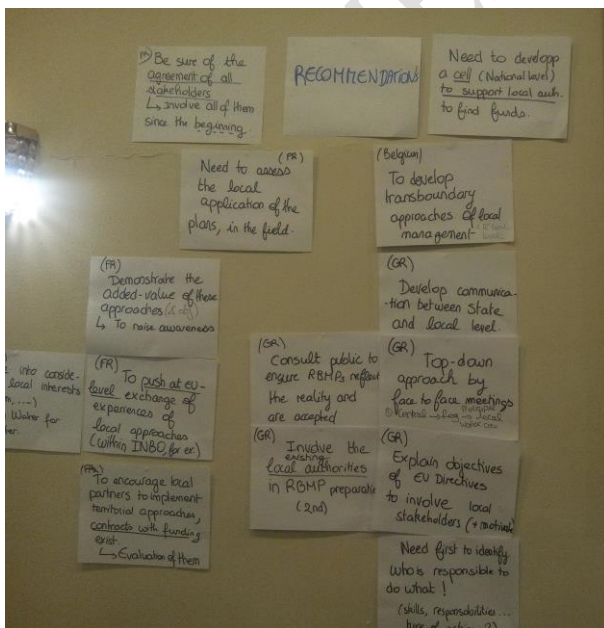 (FR)
Be sure of the
agreement of all
stakeholders
↳ Involve all of them
since the beginning
RECOMMENDATIONS
Need to developp
a cell (National level)
to support local auth.
to find funds.
(FR)
Need to assess
the local
application of the
plans, in the field.
(Belgium)
To develop
transboundary
approaches of local
management
(FR)
Demonstrate the
added-value of these
approaches
↳ To raise awareness
(GR)
Develop communica-
tion between State
and local level.
into conside-
local interests
, ...)
Water for
(FR)
To push at eu-
level exchange of
experiences of
local approaches
(within INBO, for ex.)
(GR)
Consult public to
ensure RBMPs reflect
the reality and
are accepted
(GR)
Top-down
approach by
face to face meetings
central → reg → local
(GR)
Involve the
existing
local authorities
in RBMP preparatio
(2nd)
(GR)
Explain objectives
of EU Directives
to involve local
stakeholders (+ motivate)
To encourage local
partners to implement
territorial approaches,
contracts with funding
exist
↳ Evaluation of them
Need first to identify
who is responsible to
do what !
(skills, responsabilities ...